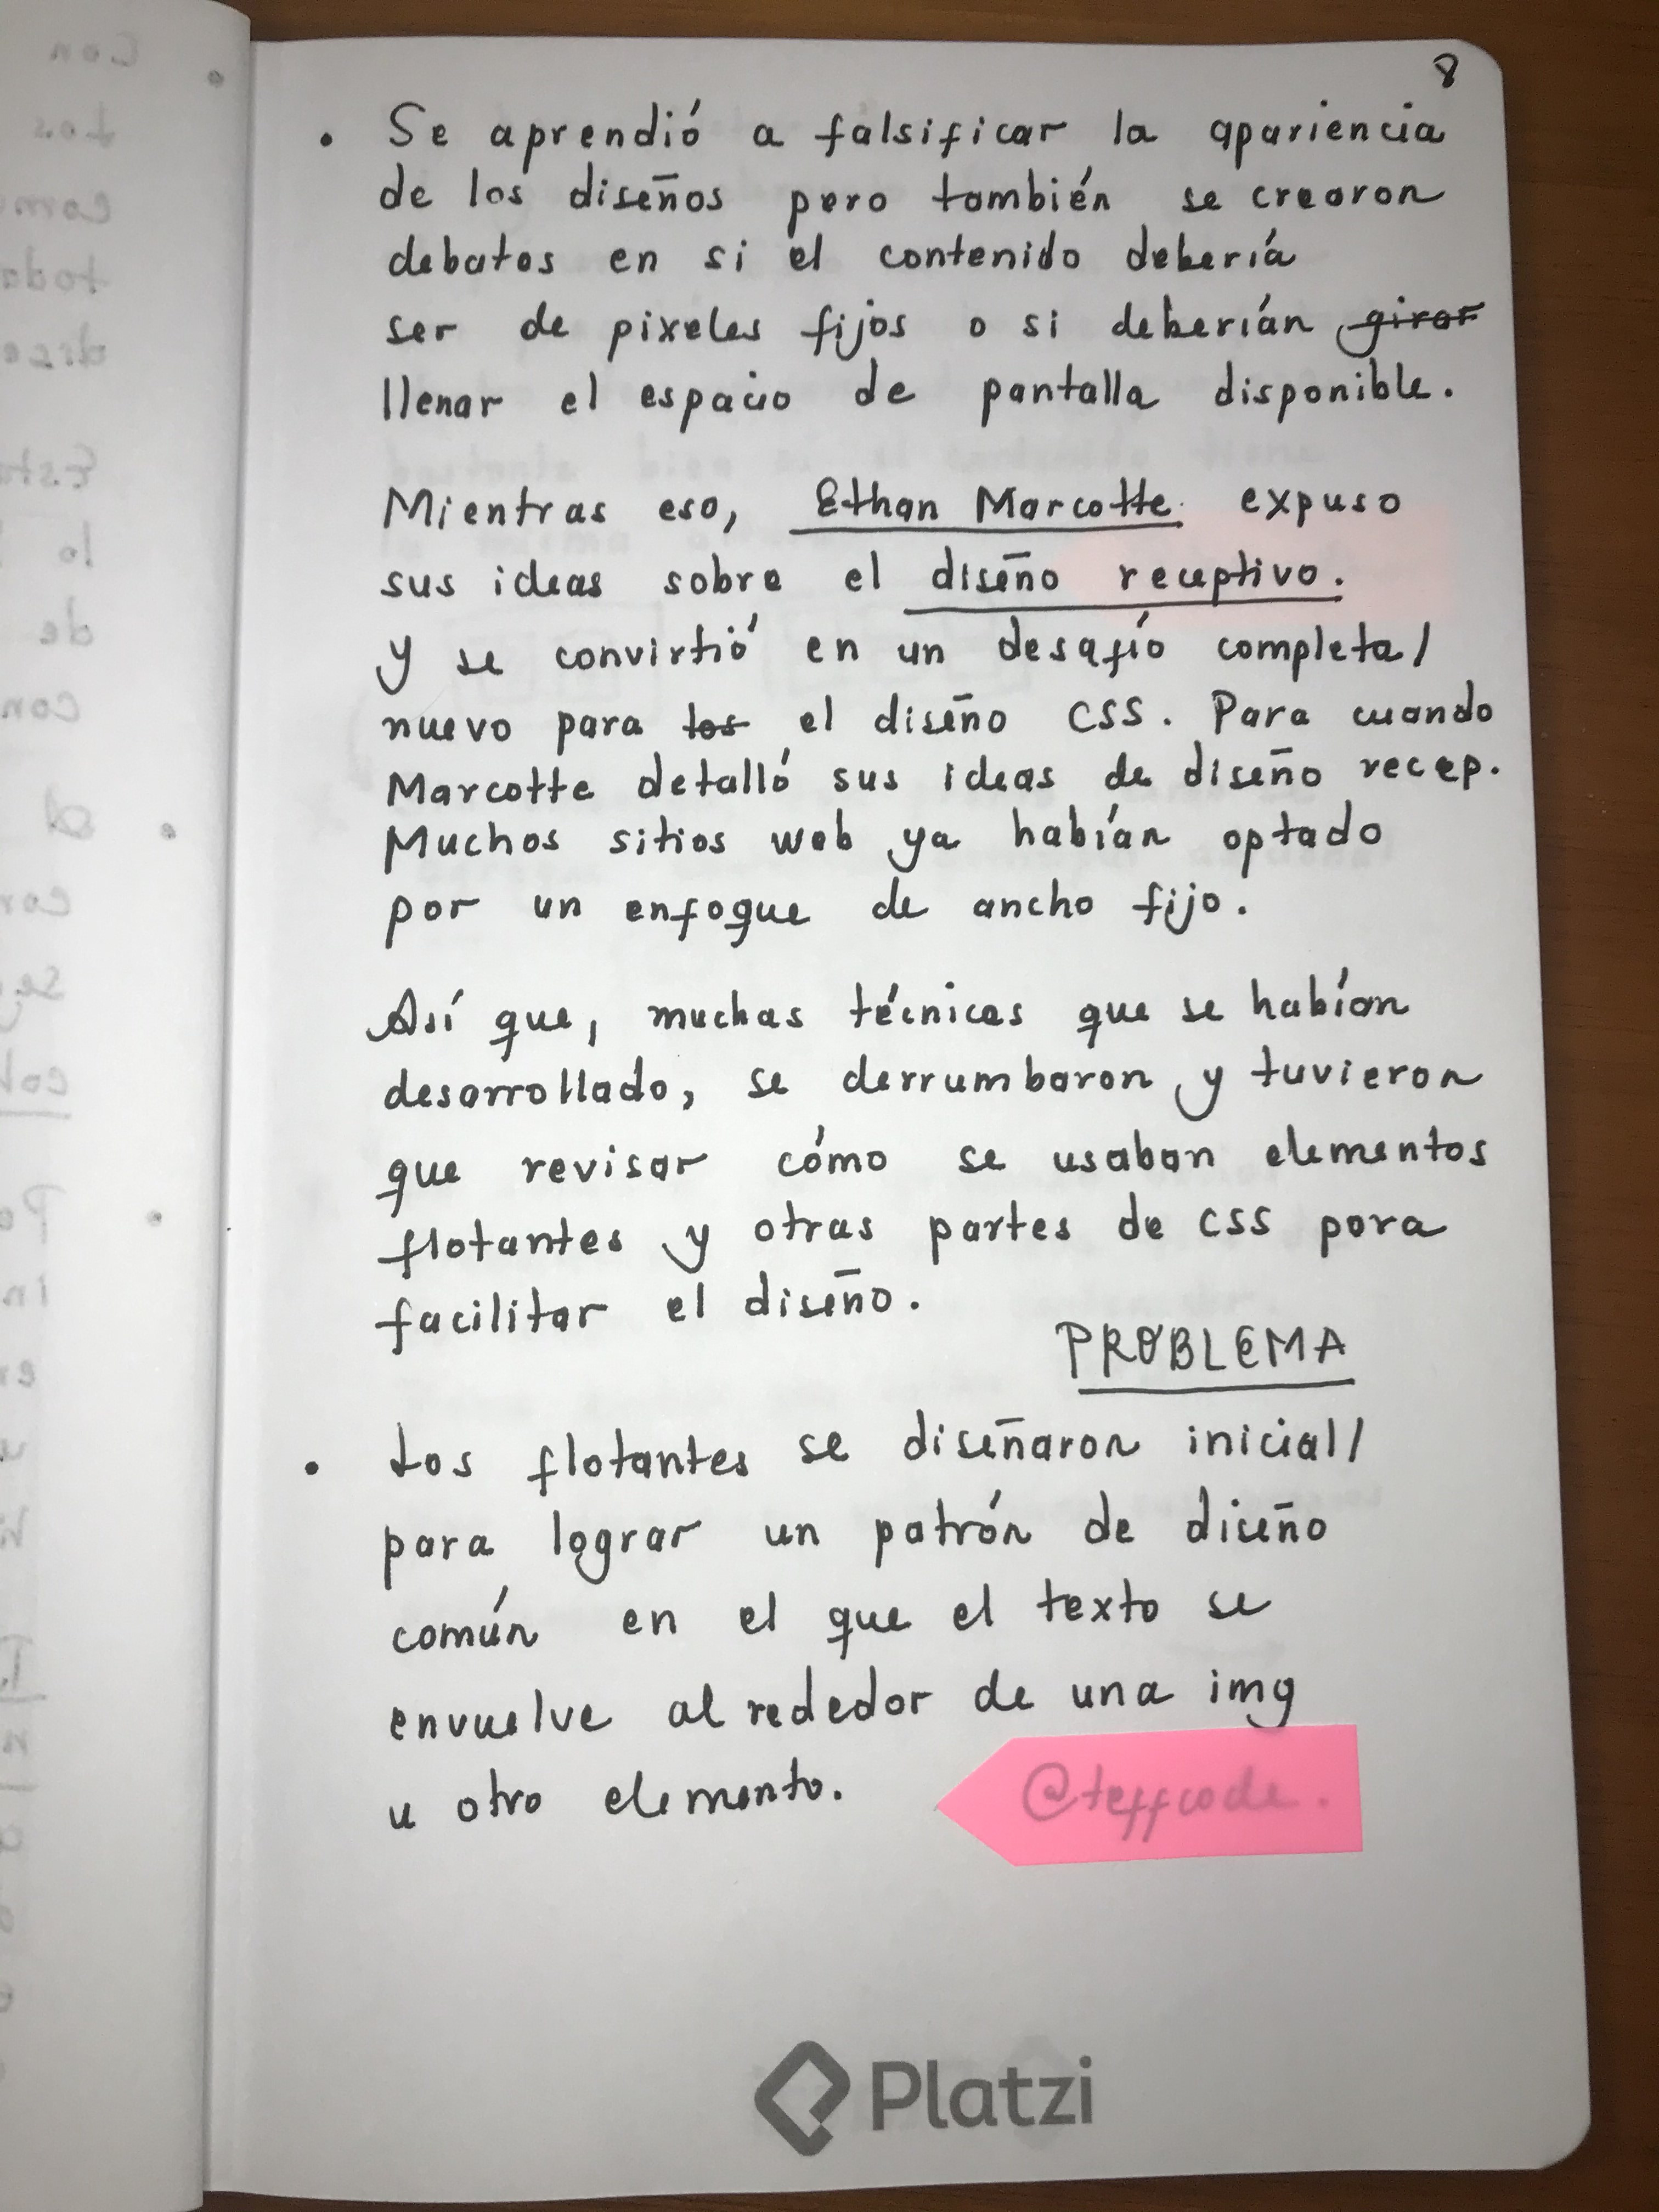 8
• Se aprendió a falsificar la apariencia
de los diseños pero también se crearon
debates en si el contenido debería
ser de pixeles fijos o si deberían girar
llenar el espacio de pantalla disponible.
Mientras eso, Ethan Marcotte expuso
sus ideas sobre el diseño receptivo.
y se convirtió en un desafío completa/
nuevo para los el diseño CSS. Para cuando
Marcotte detalló sus ideas de diseño recep.
Muchos sitios web ya habían optado
por un enfoque de ancho fijo.
Así que, muchas técnicas que se habían
desarrollado, se derrumbaron y tuvieron
que revisar cómo se usaban elementos
flotantes y otras partes de CSS para
facilitar el diseño.
PROBLEMA
• Los flotantes se diseñaron inicial/
para lograr un patrón de diseño
común en el que el texto se
envuelve al rededor de una img
u otro elemento.
@teffcode.
Platzi